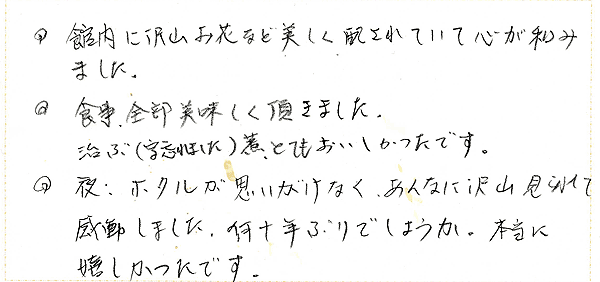 ① 館内に沢山お花など美しく配されていて心が和み
ました。
② 食事、全部美味しく頂きました。
治ぶ(字忘れました)煮、とてもおいしかったです。
③ 夜:ホタルが思いがけなく、あんなに沢山見られて
感動しました。何十年ぶりでしょうか。本当に
嬉しかったです。